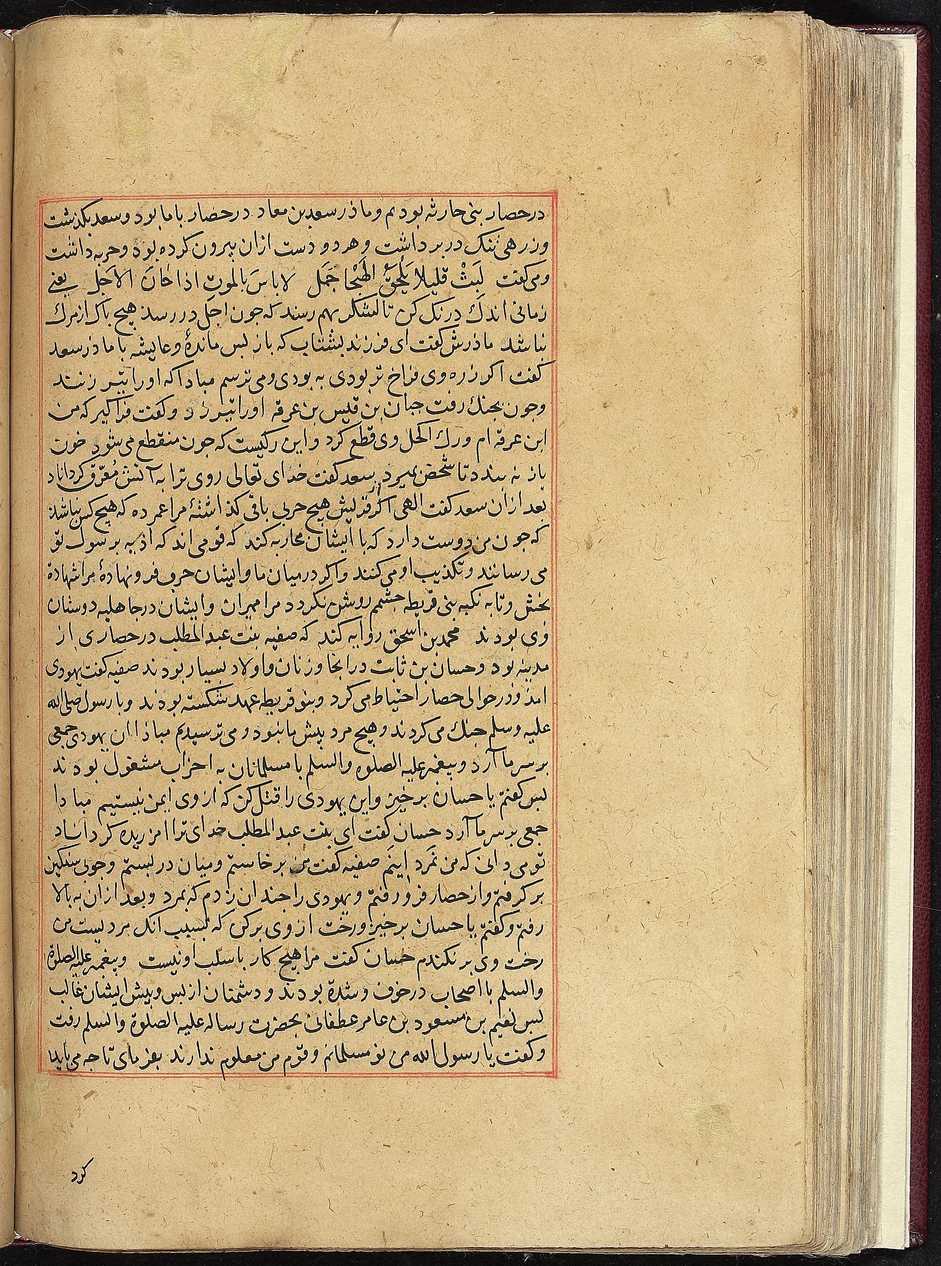 در حصار بنی حارثه بودیم وماذر سعد بن معاد در حصار باما بود و سعد بکذشت
وزرهی تنک در برداشت و هر دو دست ازان بیرون کرده بود و حربه داشت
ومی کفت لَبِثْ قَلیلا یَلْحَقُ الهَیْجا جَمل لا باسَ بالموتِ اذا حَانَ الاَجَل یعنی
زمانی اندک درنک کن تا لشکر بهم رسند که جون اجل در رسذ هیچ باک از مرک
نباشد ماذرش کفت ای فرزند بشتاب که باز بس ماندهٔ وعایشه با ماذر سعد
کفت اکر زره وی فراخ تر بودی به بودی ومی ترسم مباداکه اورا تیر زنند
وجون بجنک رفت حبان بن قیس بن عرقه اورا تیر زد وکفت فراکیر که من
ابن عرقه ام ورک اکحل وی قطع کرد واین رکیست که جون منقطع می شود خون
باز نه بندد تا شخص بمیرد سعد کفت خدای تعالی روی ترا به آتش مُعَرَّق کرداناد
بعد ازان سعد کفت الهی اکر از قریش هیچ حربی باقی کذاشتهٔ مرا عمر ده که هیچ کس نباشد
که جون من دوست دارد که با ایشان محاربه کند که قومی اند که اذیه بر رسول تو
می رسانند وتکذیب او می کنند واکر در میان ما وایشان حرب فرو نهادهٔ مرا شهادة
بخش وتا به نکبه بنی قریظه جشمم روشن نکردد مرا میران وایشان در جاهلیه دوستان
وی بودند محمد بن اسحق روایه کند که صفیه بنت عبد المطلب در حصاری از
مدینه بود وحسان بن ثابت در انجا وزنان واولاد بسیار بودند صفیه کفت یهودی
امذ ودر حوالی حصار احتیاط می کرد وبنو قریظه عهد شکسته بودند وبا رسول صلی الله
علیه وسلم جنک می کردند وهیچ مرد بیش ما نبود ومی ترسیدیم مبادا ان یهودی جمعی
بر سر ما آرد وبیغمبر علیه الصلوه والسلم با مسلمانان به احزاب مشغول بودند
بس کفتم یا حسان برخیز واین یهودی را قتل کن که از وی ایمن نیستیم مبادا
جمعی بر سر ما آرد حسان کفت ای بنت عبد المطلب خدای ترا امرزیده کرداناد
تو می دانی که من مَرد اینَم صفیه کفت من برخاستم ومیان دربستم وجوبی سنکین
برکرفتم واز حصار فرو رفتم ویهودی را جندان زدم که بمرد وبعد ازان به بالا
رفتم وکفتم یا حسان برخیز ورخت از وی برکن که بسبب انک مردیست من
رخت وی برنکندم حسان کفت مرا هیچ کار با سلب او نیست وبیغمبر علیه الصلوة
والسلم با اصحاب در خوف وشدة بودند ودشمنان از بس وبیش ایشان غالب
بس نعیم بن مسعود بن عامر غطفانی بحضرت رساله علیه الصلوة والسلم رفت
وکفت یا رسول الله من نو مسلمانم وقوم من معلوم ندارند بفرمای تا جه می باید
کرد